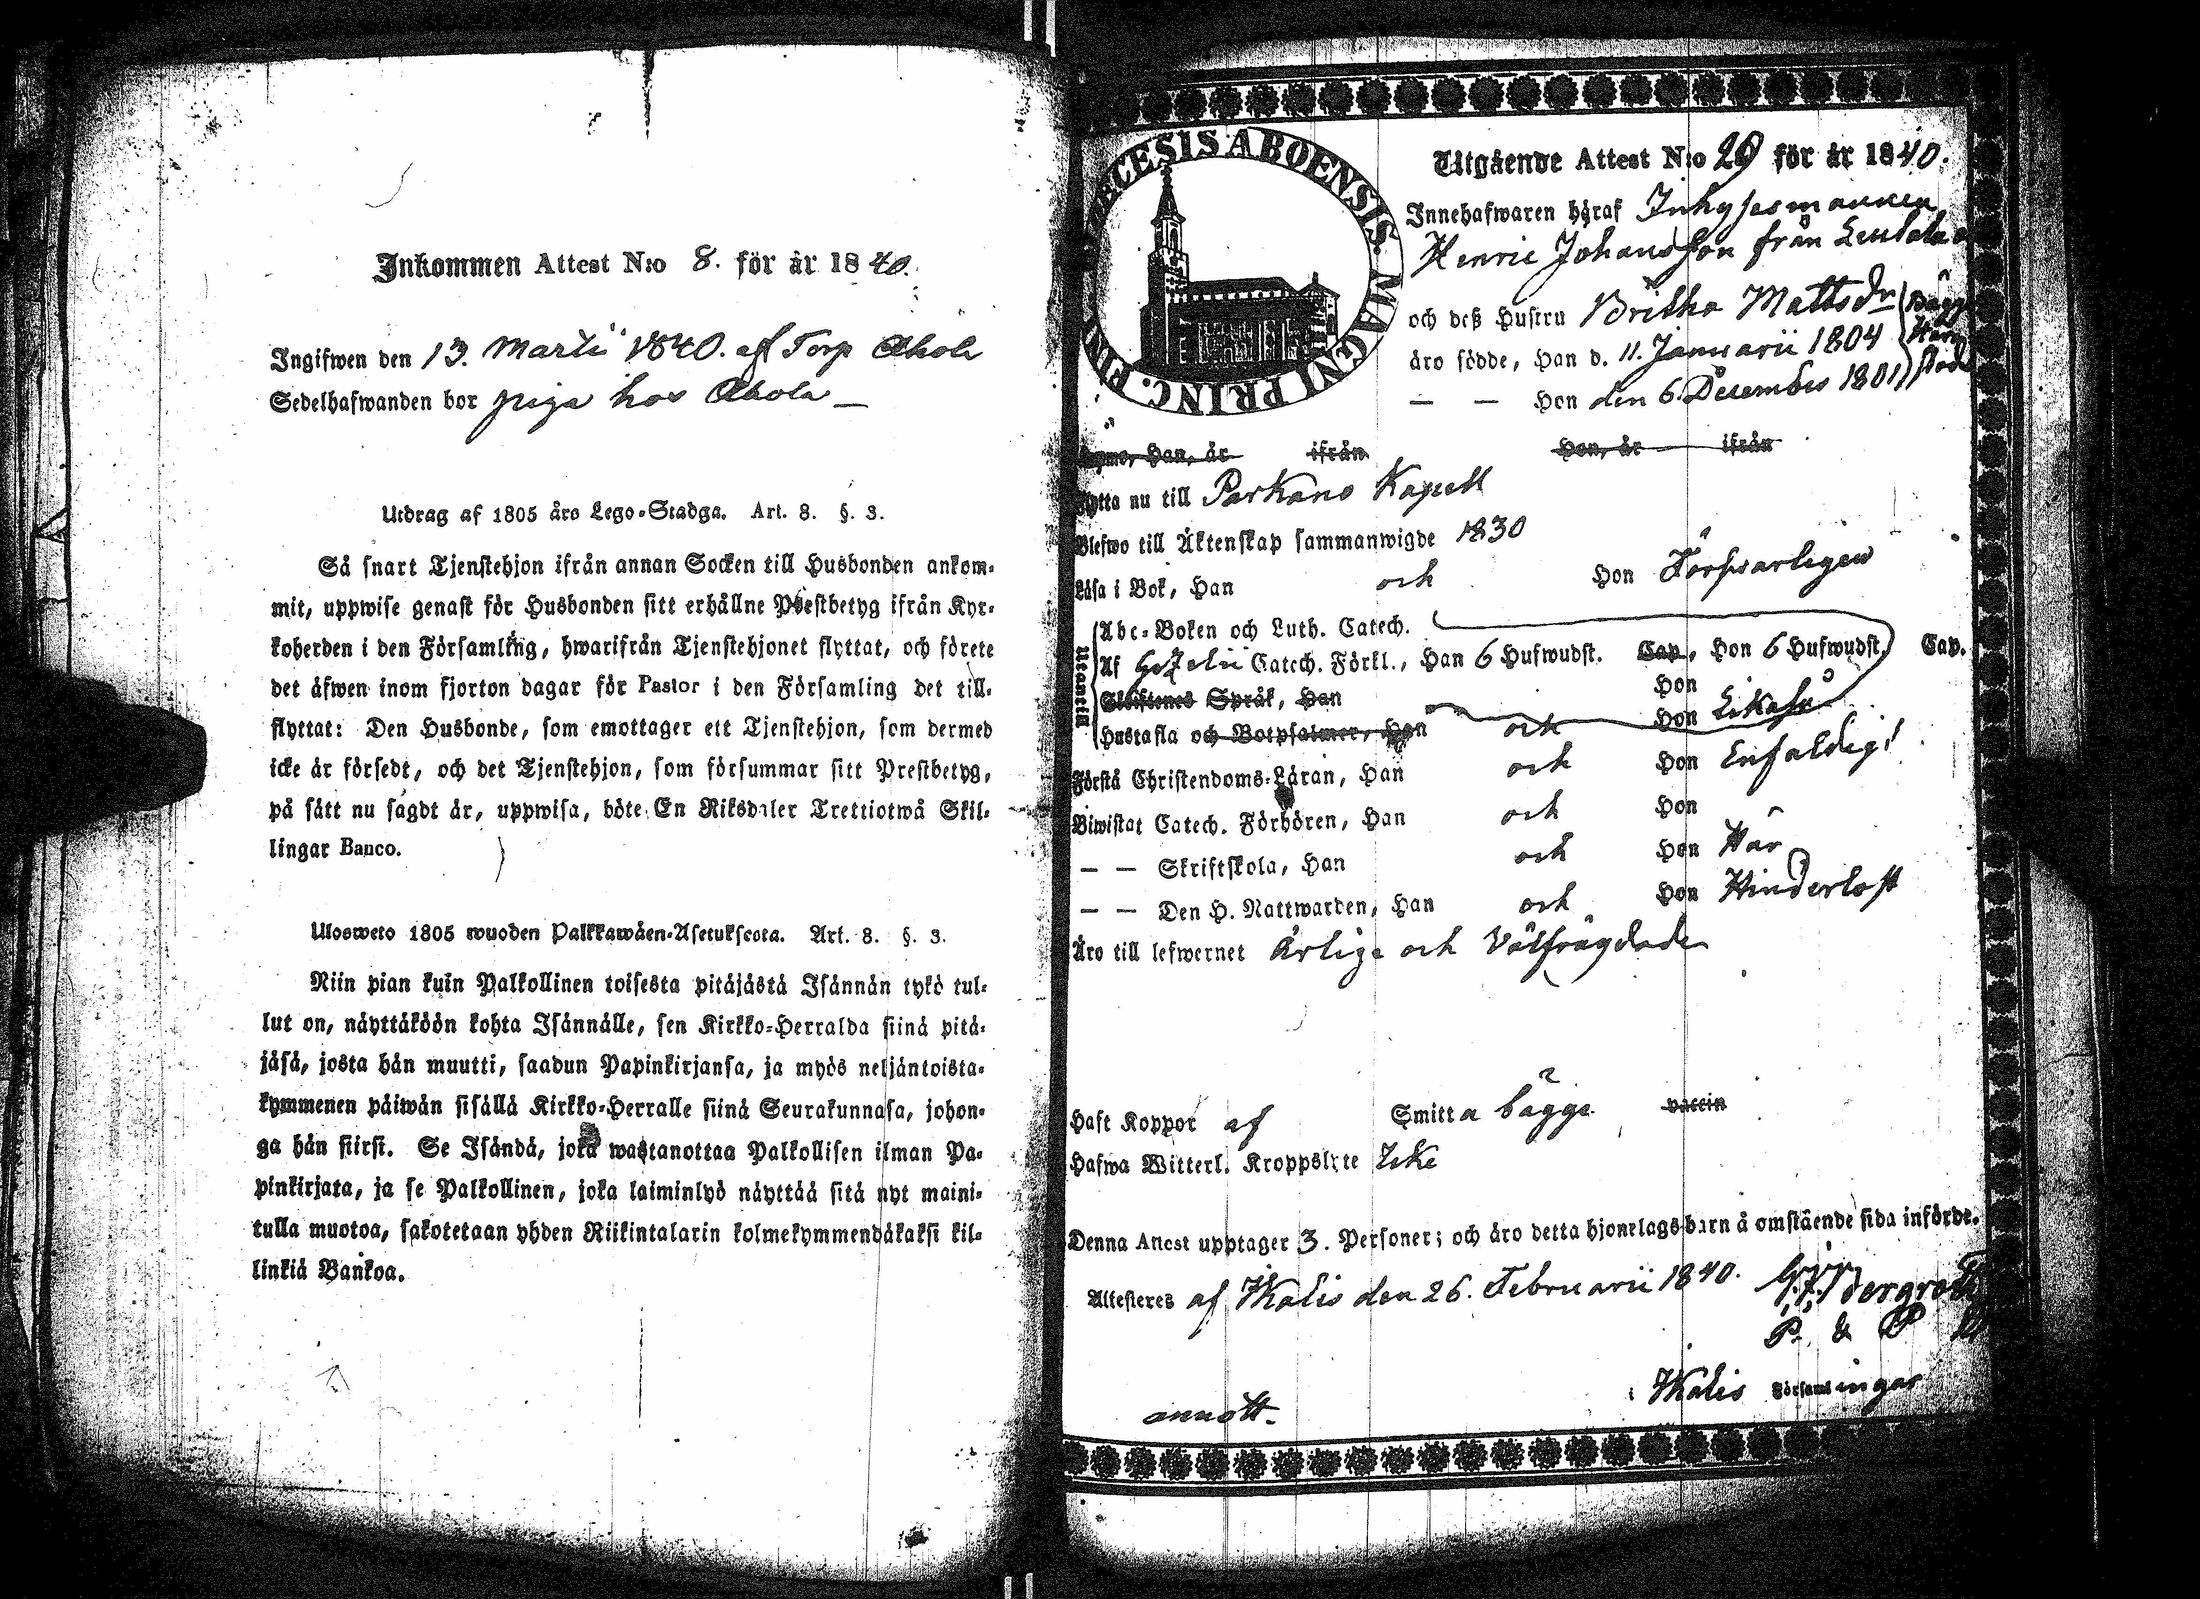 Inkommen Attest N:o 8. för år 1840.
Ingifwen den 13. Martii 1840. af Torp Ahola
Sedelhafwanden bor piga hos Ahola —
Utdrag af 1805 års Lego-Stadga. Art. 8. §. 3.
Så snart Tjenstehjon ifrån annan Socken till Husbonden ankom-
mit, uppwise genast för Husbonden sitt erhållne Prestbetyg ifrån Kyr-
koherden i den Församling, hwarifrån Tjenstehjonet flyttat, och förete
det äfwen inom fjorton dagar för Pastor i den Församling det till-
flyttat: Den Husbonde, som emottager ett Tjenstehjon, som dermed
icke är försedt, och det Tjenstehjon, som försummar sitt Prestbetyg,
på sätt nu sagdt är, uppwisa, böte En Riksdaler Trettiotwå Skil-
lingar Banco.
Ulosweto 1805 wuoden Palkkawäen-Asetuksesta. Art. 8. §. 3.
Niin pian kuin Palkollinen toisesta pitäjästä Isännän tykö tul-
lut on, näyttäköön kohta Isännälle, sen Kirkko-Herralda siinä pitä-
jäsä, josta hän muutti, saadun Papinkirjansa, ja myös neljäntoista-
kymmenen päiwän sisällä Kirkko-Herralle siinä Seurakunnasa, johon-
ga hän siirsi. Se Isändä, joka wastanottaa Palkollisen ilman Pa-
pinkirjata, ja se Palkollinen, joka laiminlyö näyttää sitä nyt maini-
tulla muotoa, sakotetaan yhden Riikintalarin kolmekymmendäkaksi kil-
linkiä Bankoa.
DIOECESIS ABOENSIS. MAGNI PRINC. FIN
Utgående Attest N:o 29 för år 1840.
Innehafwaren häraf Inhysesmannen
Henric Johansson från
och deß Hustru Britha Mattsdr
äro födde, Han d. 11. Januarii 1804
— — Hon den 6. Decembes 1801
Bägge
Här
föd
Komne, Han, år ifrån Hon, år ifrån
Flytta nu till Parkano Kapell
Blefwo till Äktenskap sammanwigde 1830
Läsa i Bok, Han och Hon Försvarligen
Utantill
Abc-Boken och Luth. Catech.
Af Gezelii Catech. Förkl., Han 6 Hufwudst. Cap., Hon 6 Hufwudst. Cap.
Skriftenes Språk, Han Hon
Hustafla och Botpsalmer, Han och Hon Likaså
Förstå Christendoms-Läran, Han och Hon Enfaldigt
Biwistat Catech. Förhören, Han och Hon
— — Skriftskola, Han och Hon Här
— — Den H. Nattwarden, Han och Hon Hinderlöst
Äro till lefwernet Ärlige och Välfrägdade
Haft Koppor af Smitta bägge vaccin
Hafwa Witterl. Kroppslyte Icke
Denna Attest upptager 3. Personer; och äro detta hjonelags barn å omstående sida införde.
Attesteres af Ikalis den 26. Februarii 1840.
P. &
i Ikalis Församlingar
annott.